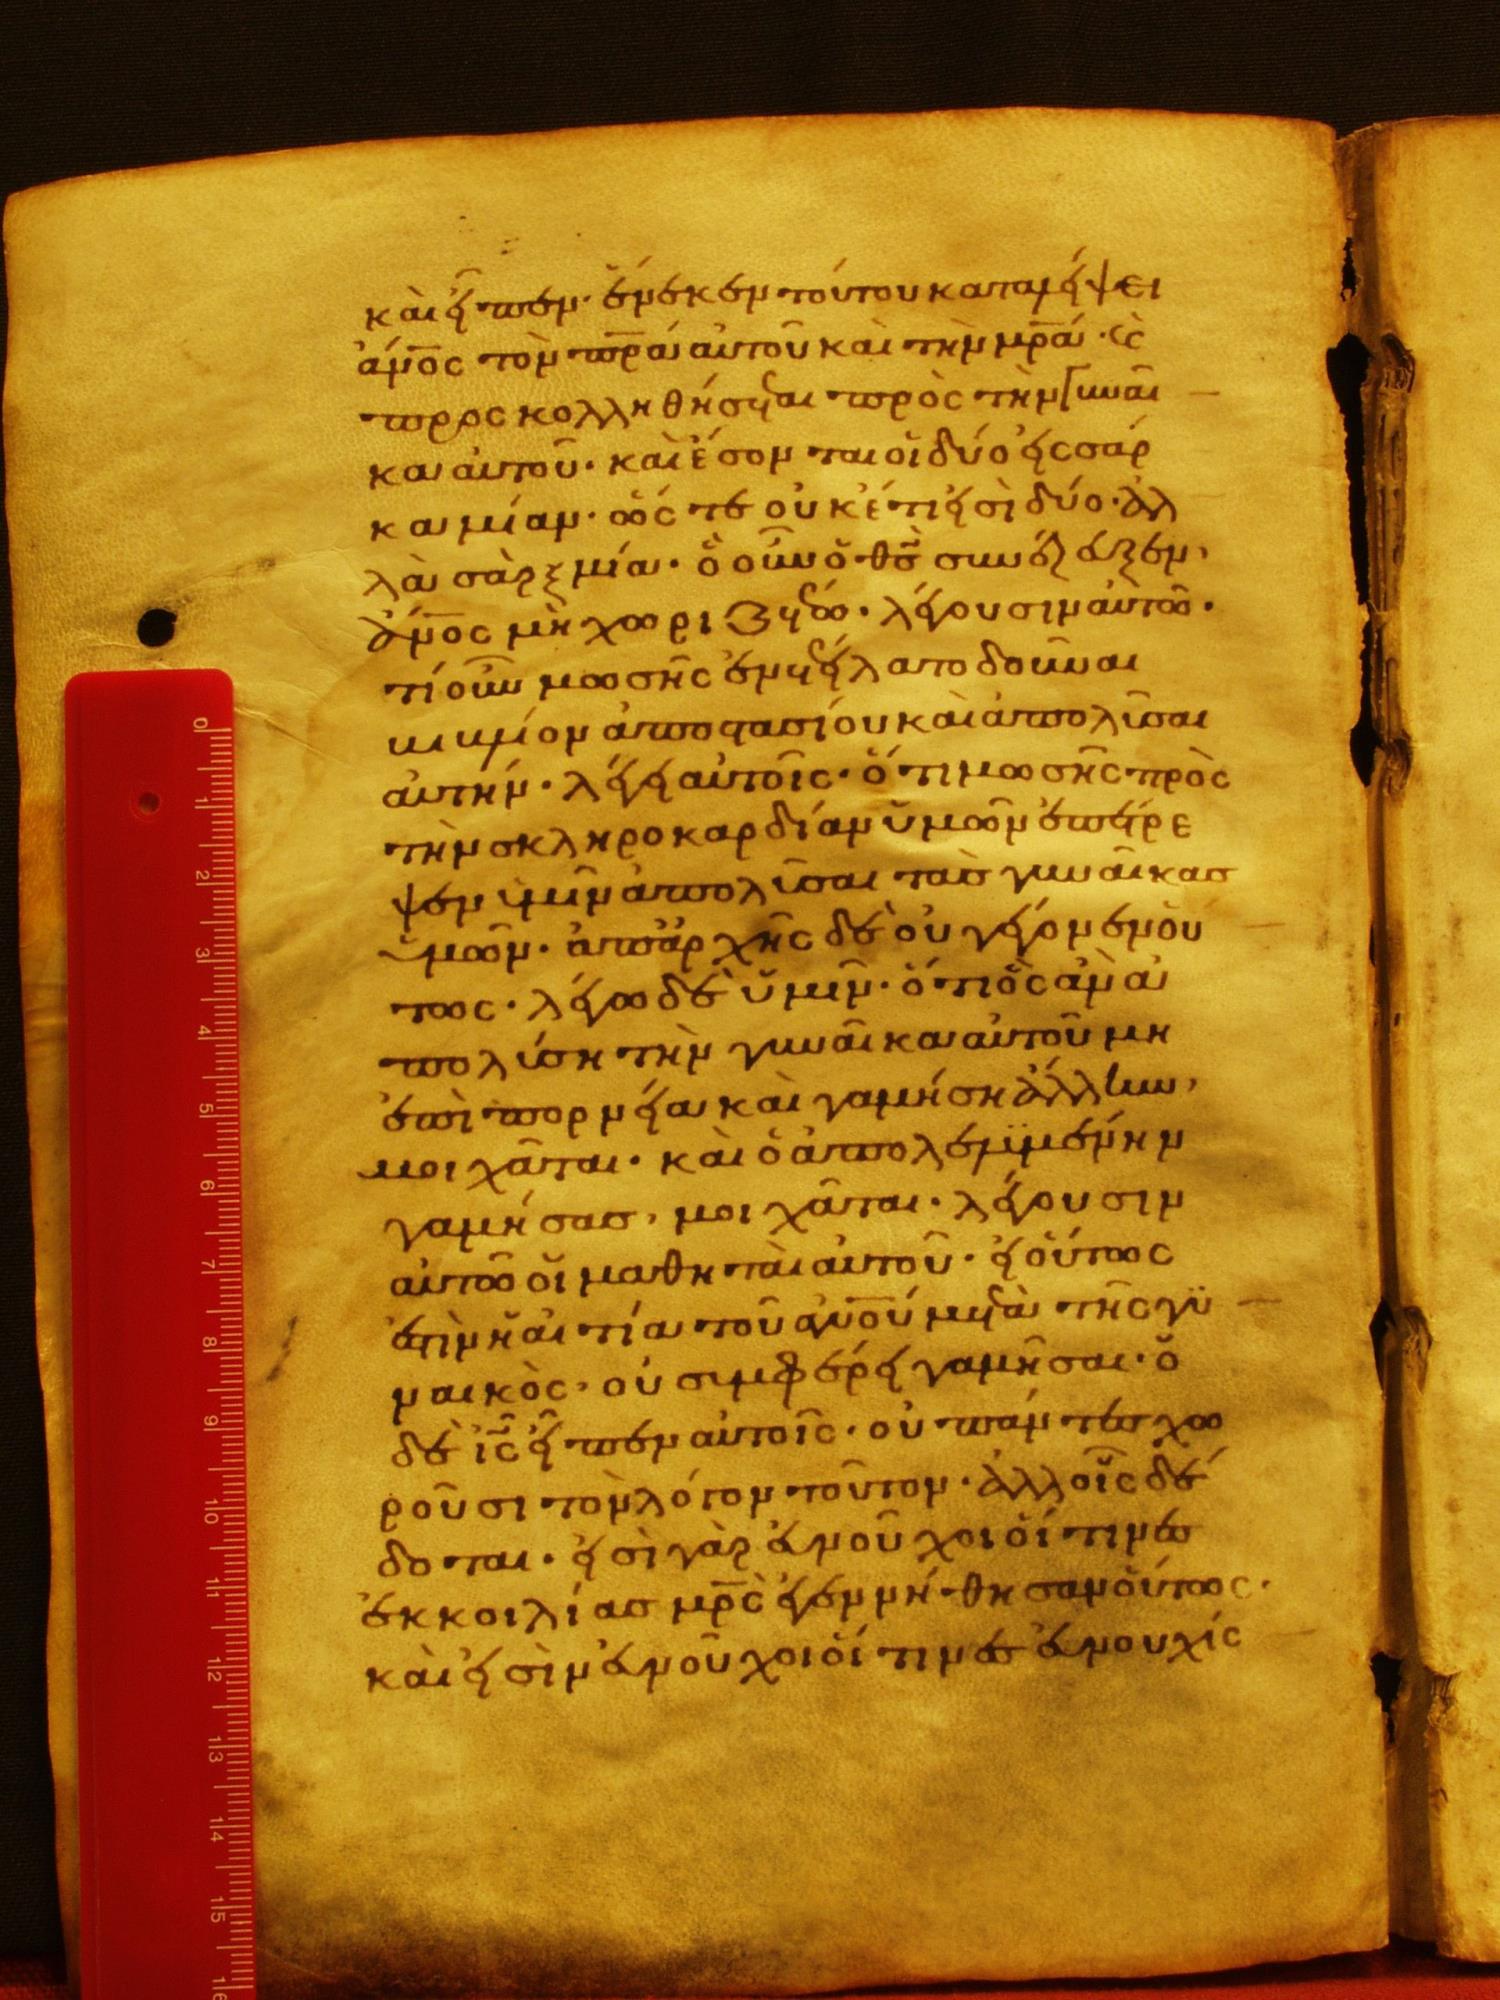 καὶ εἶπεν· ἕνεκεν τούτου καταλείψει
ἄν̅ο̅ς τὸν π̅ρ̅α αὐτοῦ καὶ τὴν μ̅ρ̅α· καὶ
προσκολληθήσεται πρὸς τὴν γυναῖ
κα αὐτοῦ· καὶ ἔσονται οἱ δύο εἰς σάρ
κα μίαν· ὥστε οὐκέτι εἰσὶ δύο· ἀλ
λὰ σὰρξ μία· ὃ οὖν ὁ θ̅ς̅ συνέζευξεν,
ἄν̅ο̅ς μὴ χωριζέτω· λέγουσιν αὐτῶ·
τί οὖν μωσῆς ἐνετείλατο δοῦναι
βιβλίον ἀποστασίου καὶ ἀπολῦσαι
αὐτήν· λέγει αὐτοῖς· ὅτι μωσῆς πρὸς
τὴν σκληροκαρδίαν ὑμῶν ἐπέτρε
ψεν ὑμῖν ἀπολῦσαι τὰς γυναῖκας
ὑμῶν· ἀπαρχῆς δὲ οὐ γέγονεν οὕ
τως· λέγω δὲ ὑμῖν· ὅτι ὃς ἂν ἀ
πολύση τὴν γυναῖκα αὐτοῦ μὴ
ἐπὶ πορνεία καὶ γαμήση ἄλλην,
μοιχᾶται· καὶ ὁ ἀπολελυμένην
γαμήσας, μοιχᾶται· λέγουσιν
αὐτῶ οἱ μαθηταὶ αὐτοῦ· εἰ οὕτως
ἐστὶν ἡ αἰτία τοῦ ἀ̅ν̅ο̅υ μετὰ τῆς γυ
ναικὸς, οὐ συμφέρει γαμῆσαι· ὁ
δὲ ἰ̅ς̅ εἶπεν αὐτοῖς· οὐ πάντες χω
ροῦσι τὸν λόγον τοῦτον· ἀλλ οἷς δέ
δοται· εἰσὶ γὰρ εὐνοῦχοι οἵτινες
ἐκ κοιλίας μ̅ρ̅ς̅ ἐγεννήθησαν οὕτως·
καὶ εἰσὶν εὐνοῦχοι οἵτινες εὐνουχίς